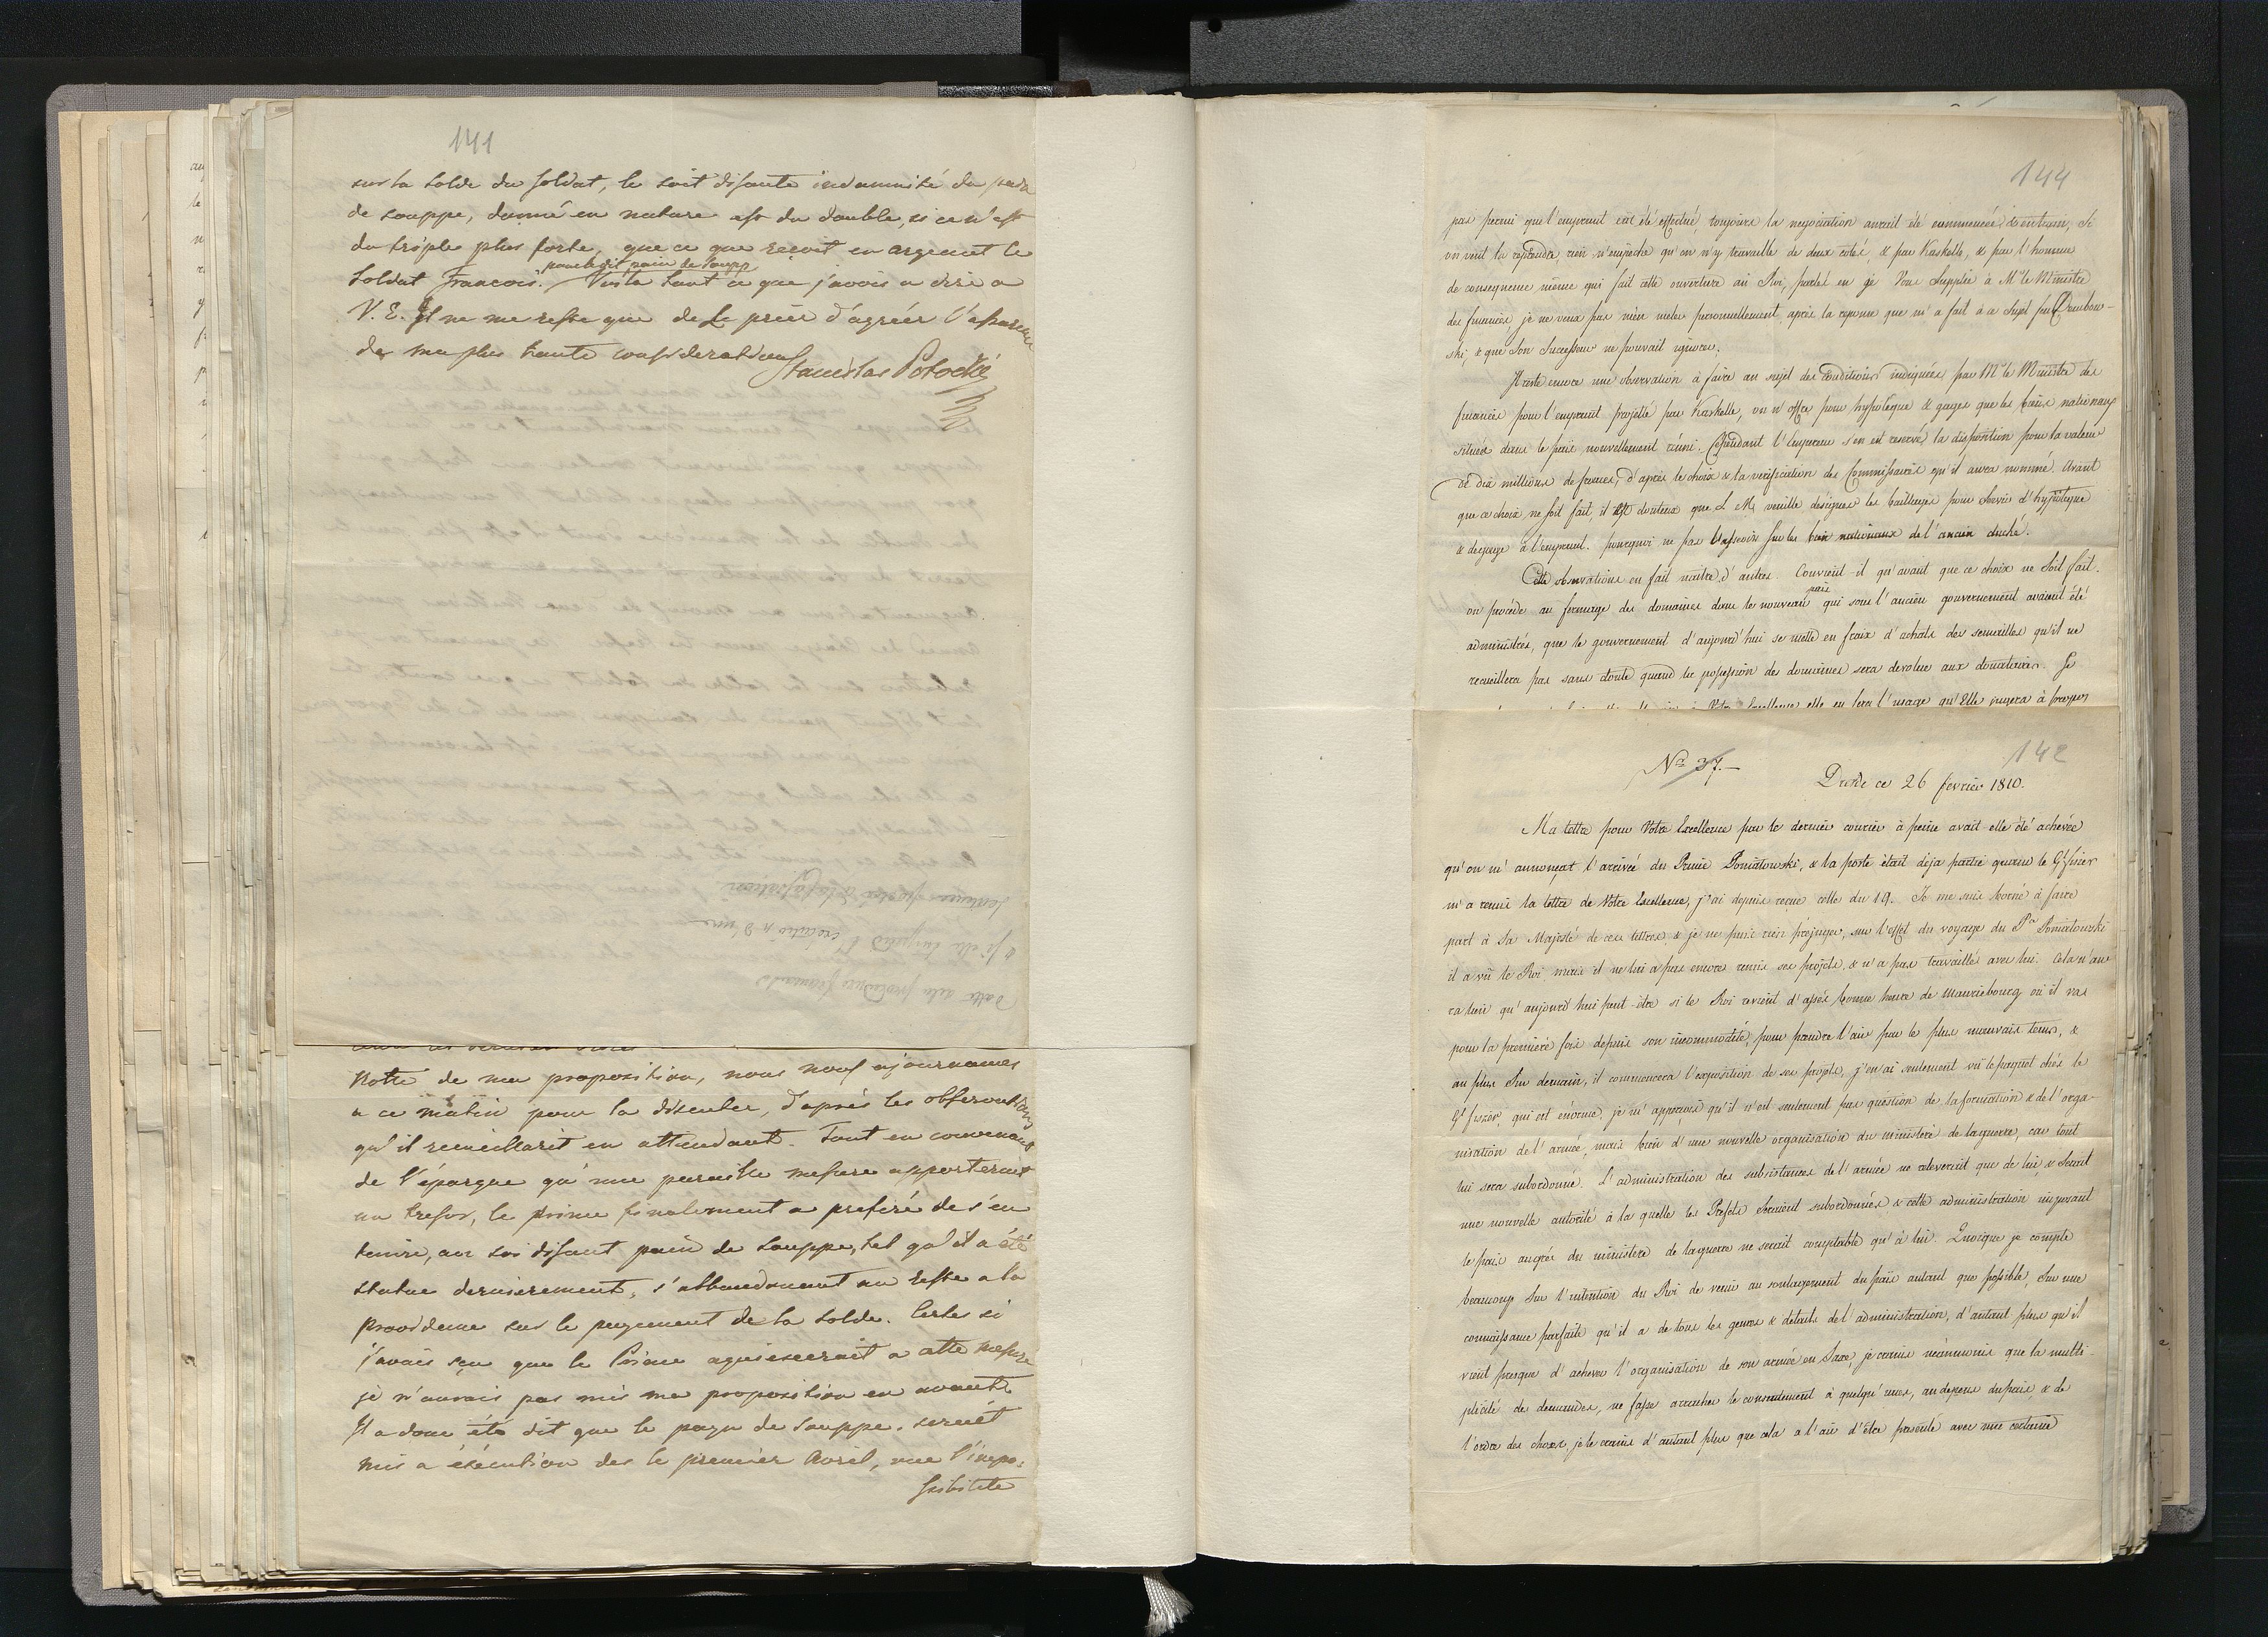 141
sur la solde du soldat, le soit disante indamnité du pain
de souppe, donné en nature est du double, si ce n'est
du triple plus forte, que ce que reçoit en argent le
pour le dit pain de soupp
soldat francois. Voila tout ce que j'avois a dire a
V. E. Il ne me reste que de Le prier d'agréer l'assurance
de ma plus haute consideration
Stanislas Potocki
Notte de ma proposition, nous nous ajournames
a ce matin pour la discuter, d'après les observations
qu'il recueillerit en attendant. Tout en convenant
de l'épargne qu'une pareille mesure apporterait
au tresor, le prince finalement a preferé de s'en
tenire, au soi disant pain de souppe, tel qu'il a été
statue dernierement, s'abbandonant au reste a la
providence sur le payement de la solde. Certes si
j'avais sçu que le Prince aquiescerait a cette mesure
je n'aurais pas mis ma proposition en avant.
Il a donc été dit que le pain de souppe, seroit
mis a éxécution des le premier Avril, vue l'impo-
ssibilite
144
pas permi que l'emprunt eut été effectué, toujours la negociation aurait été commencée & entamé, Si
on veut la reprendre, rien n'empeche qu'on n'y travaille de deux cotés, & par Kaskelle, & par l'homme
de consequence même qui fait cette ouverture au Roi, parlés en je Vous Supplie à Mr le Ministre
des finances, je ne veux pas m'en meler personnellement après la reponse que m'a fait à ce Sujet feu Dembow-
ski, & que Son Successeur ne pouvait ignorer.
Il reste encore une observation à faire au sujet des Conditions indiquées par Mr le Ministre des
finances pour l'emprunt projetté par Kaskelle, on n'offre pour hypoteque & gages que les biens nationaux
situés dans le païs nouvellement réuni. Cependant l'Empereur s'en est reservé la disposition pour la valeur
de dix millions de francs, d'après le choix & la verification des Commissaires qu'il aura nommé. Avant
que ce choix ne soit fait, il est douteux que S. M. veuille designer les bailliages pour servir d'hypoteque
& de gage à l'emprunt. pourquoi ne pas l'asseoir sur les biens nationaux de l'ancien duché.
Cette observations en fait naitre d'autres. Convient-il qu'avant que ce choix ne soit fait.
païs
on procède au fermage des domaines dans le nouveau qui sous l'ancien gouvernement avaient été
administrés, que le gouvernement d'aujourd'hui se mette en fraix d'achats des semailles qu'il ne
recueillera pas sans doute quand la possession de domaines sera devolue aux donataires. Je
Votre Excellence, elle en fera l'usage qu'Elle jugera à propos
142
No 37.
Dresde ce 26 fevrier 1810.
Ma lettre pour Votre Excellence par le dernier courier à peine avait-elle été achevée
qu'on m'annonçat l'arrivée du Prince Poniatowski, & la poste était deja partie quand le Gl Fiszer
m'a remis la lettre de Votre Excellence, j'ai depuis reçue celle du 19. Je me suis borné à faire
part à Sa Majesté de ces lettres & je ne puis rien préjuger, sur l'effet du voyage du Pce Poniatowski
il a vû le Roi mais il ne lui a pas encore remis ses projets, & n'a pas travaillés avec lui. Cela n'au-
ra lieu qu'aujourd'hui peut-être si le Roi revient d'assés bonne heure de Mauricebourg où il va
pour la première fois depuis son incommodité, pour prendre l'air par le plus mauvais tems, &
au plus sur demain, il commencera l'exposition de ses projets, j'en ai seulement vû le paquet chés le
Gl Fiszer, qui est énorme, je m'apperçois qu'il n'est seulement pas question de la formation & de l'orga-
nisation de l'armée, mais bien d'une nouvelle organisation du ministère de la guerre, car tout
lui sera subordonné. L'administration des subsistances de l'armée ne releverait que de lui, & serait
une nouvelle autorité à la quelle les Prefets seraient subordonnés & cette administration imposant
le païs au gré du ministère de la guerre ne serait comptable qu'à lui. Quoique je compte
beaucoup sur l'intention du Roi de venir au soulagement du païs autant que possible, sur une
connaissance parfaite qu'il a de tous les genres & details de l'administration, d'autant plus qu'il
vient presque d'achever l'organisation de son armée en Saxe, je crains néanmoins que la multi-
plicité des demandes, ne fasse arracher le consentement à quelqu'unes, au depens du païs & de
l'ordre des choses, je le crains d'autant plus que cela a l'air d'être presenté avec une certaine